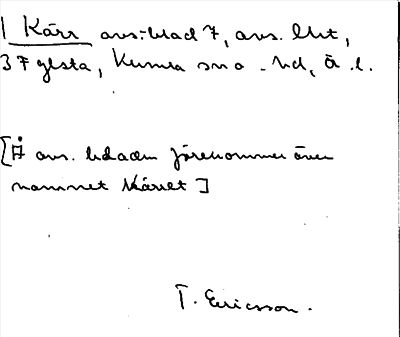 | Kärr avs.-blad 7, avs. Ekt,
37 ylsta, Kumla sn o. hd, Ä. l.
[På avs. bladen förekommer även
namnet Kärret]
T. Ericsson.